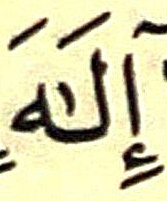 إِلَٰهَ